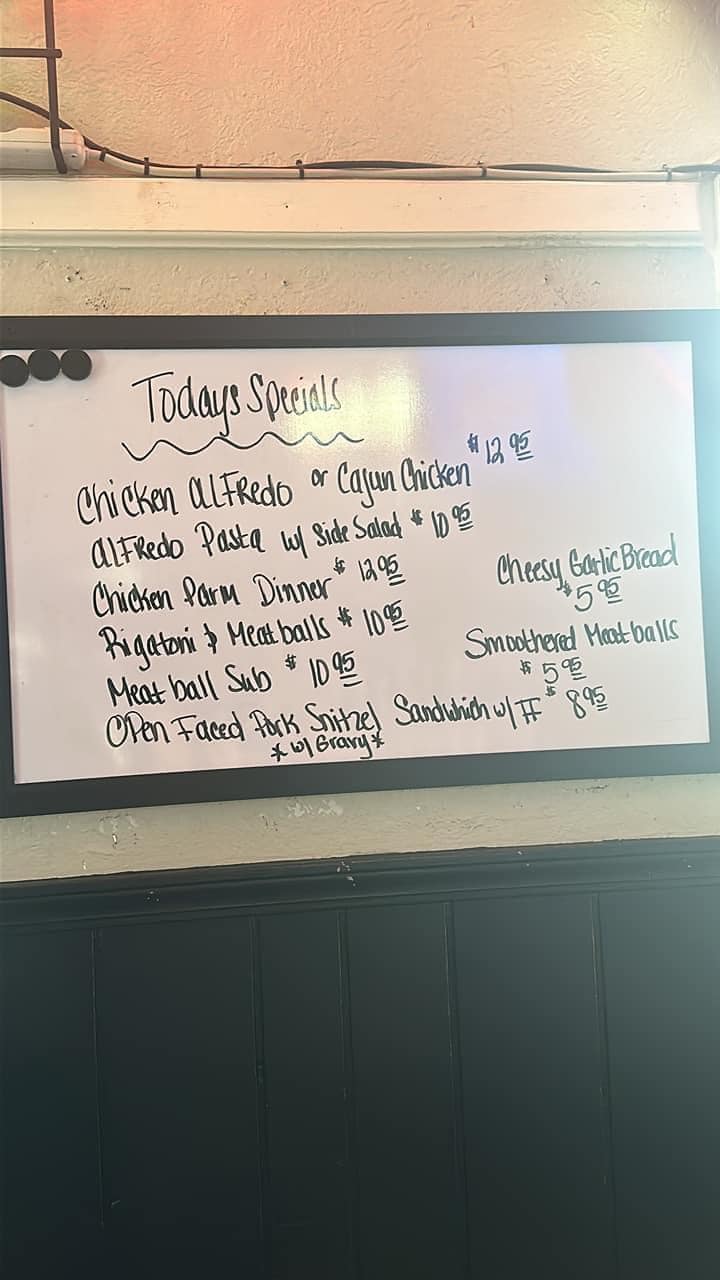 Todays Specials
Chicken ALFRedo or Cajun Chicken $12.95
ALFRedo Pasta w/ Side Salad $10.95
Chicken Parm Dinner $12.95
Rigatoni & Meatballs $10.95
Meat ball Sub $10.95
OPen Faced Pork Snitzel Sandwhich w/ FF $8.95
*w/ Gravy*
Cheesy Garlic Bread
$5.95
Smoothered Meatballs
$5.95